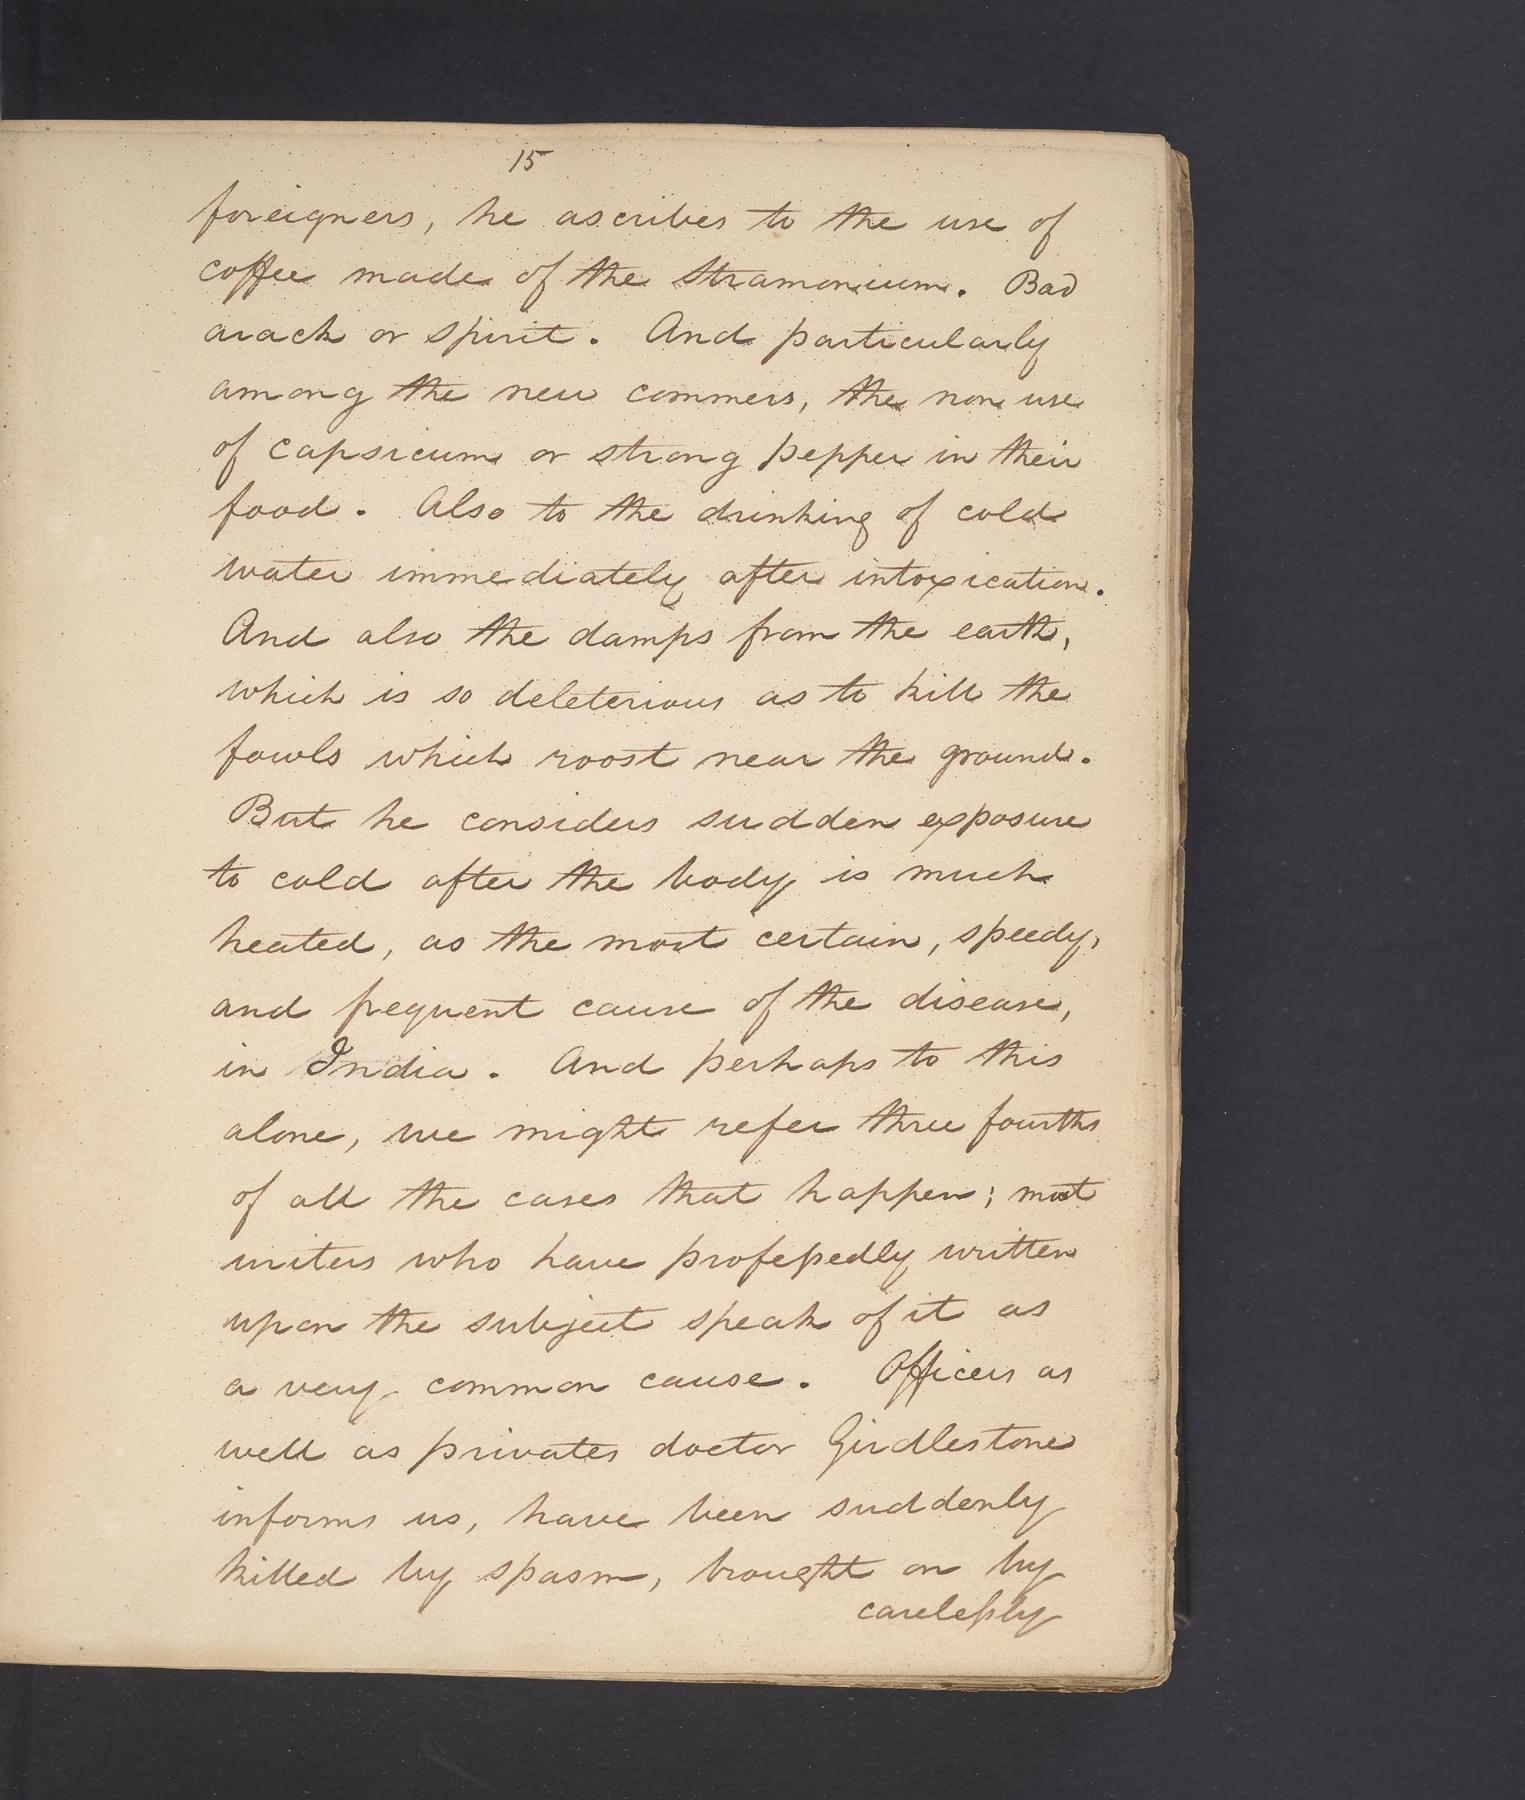 15
foreigners, he ascribes to the use of
coffee made of the Stramonium. Bad
arack or spirit. And particularly
among the new commers, the non use
of capsicum or strong pepper in their
food. Also to the drinking of cold
water immediately after intoxication.
And also the damps from the earth,
which is so deleterious as to kill the
fowls which roost near the ground.
But he considers sudden exposure
to cold after the body is much
heated, as the most certain, speedy,
and frequent cause of the disease,
in India. And perhaps to this
alone, we might refer three fourths
of all the cases that happen; most
writers who have profeſsedly written
upon the subject speak of it as
a very common cause. Officers as
well as privates doctor Girdlestone
informs us, have been suddenly
killed by spasm, brought on by
careleſsly